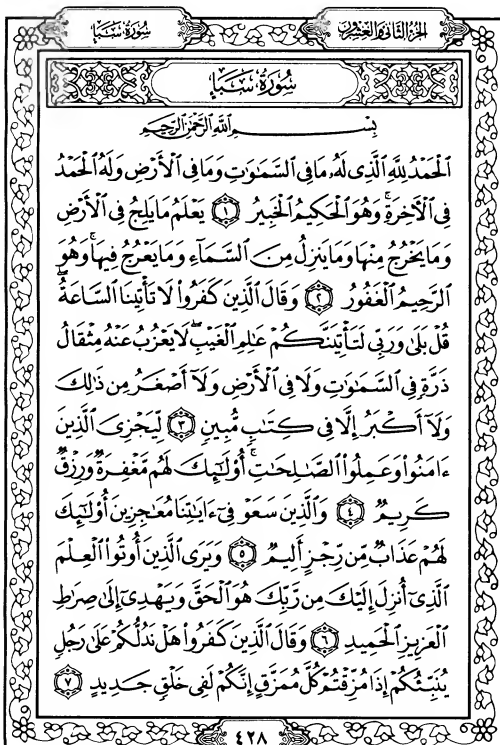 الجزء الثاني والعشرون
سورة سبأ
سُورَةُ سَبَإٍ
بِسْمِ اللَّهِ الرَّحْمَٰنِ الرَّحِيمِ
الْحَمْدُ لِلَّهِ الَّذِي لَهُ مَا فِي السَّمَٰوَٰتِ وَمَا فِي الْأَرْضِ وَلَهُ الْحَمْدُ
فِي الْآخِرَةِ ۚ وَهُوَ الْحَكِيمُ الْخَبِيرُ ۝١ يَعْلَمُ مَا يَلِجُ فِي الْأَرْضِ
وَمَا يَخْرُجُ مِنْهَا وَمَا يَنزِلُ مِنَ السَّمَآءِ وَمَا يَعْرُجُ فِيهَا ۚ وَهُوَ
الرَّحِيمُ الْغَفُورُ ۝٢ وَقَالَ الَّذِينَ كَفَرُوا لَا تَأْتِينَا السَّاعَةُ ۖ
قُلْ بَلَىٰ وَرَبِّي لَتَأْتِيَنَّكُمْ عَٰلِمِ الْغَيْبِ ۖ لَا يَعْزُبُ عَنْهُ مِثْقَالُ
ذَرَّةٍ فِي السَّمَٰوَٰتِ وَلَا فِي الْأَرْضِ وَلَآ أَصْغَرُ مِن ذَٰلِكَ
وَلَآ أَكْبَرُ إِلَّا فِي كِتَٰبٍ مُّبِينٍ ۝٣ لِّيَجْزِيَ الَّذِينَ
ءَامَنُوا وَعَمِلُوا الصَّٰلِحَٰتِ ۚ أُولَٰٓئِكَ لَهُم مَّغْفِرَةٌ وَرِزْقٌ
كَرِيمٌ ۝٤ وَالَّذِينَ سَعَوْ فِيٓ ءَايَٰتِنَا مُعَٰجِزِينَ أُولَٰٓئِكَ
لَهُمْ عَذَابٌ مِّن رِّجْزٍ أَلِيمٌ ۝٥ وَيَرَى الَّذِينَ أُوتُوا الْعِلْمَ
الَّذِيٓ أُنزِلَ إِلَيْكَ مِن رَّبِّكَ هُوَ الْحَقَّ وَيَهْدِيٓ إِلَىٰ صِرَٰطِ
الْعَزِيزِ الْحَمِيدِ ۝٦ وَقَالَ الَّذِينَ كَفَرُوا هَلْ نَدُلُّكُمْ عَلَىٰ رَجُلٍ
يُنَبِّئُكُمْ إِذَا مُزِّقْتُمْ كُلَّ مُمَزَّقٍ إِنَّكُمْ لَفِي خَلْقٍ جَدِيدٍ ۝٧
٤٢٨